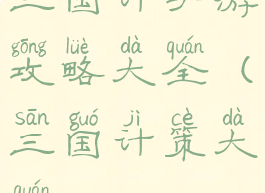 gōng lüè dà quán
攻略大全（
sān guó jì cè dà
三国计策大
quán